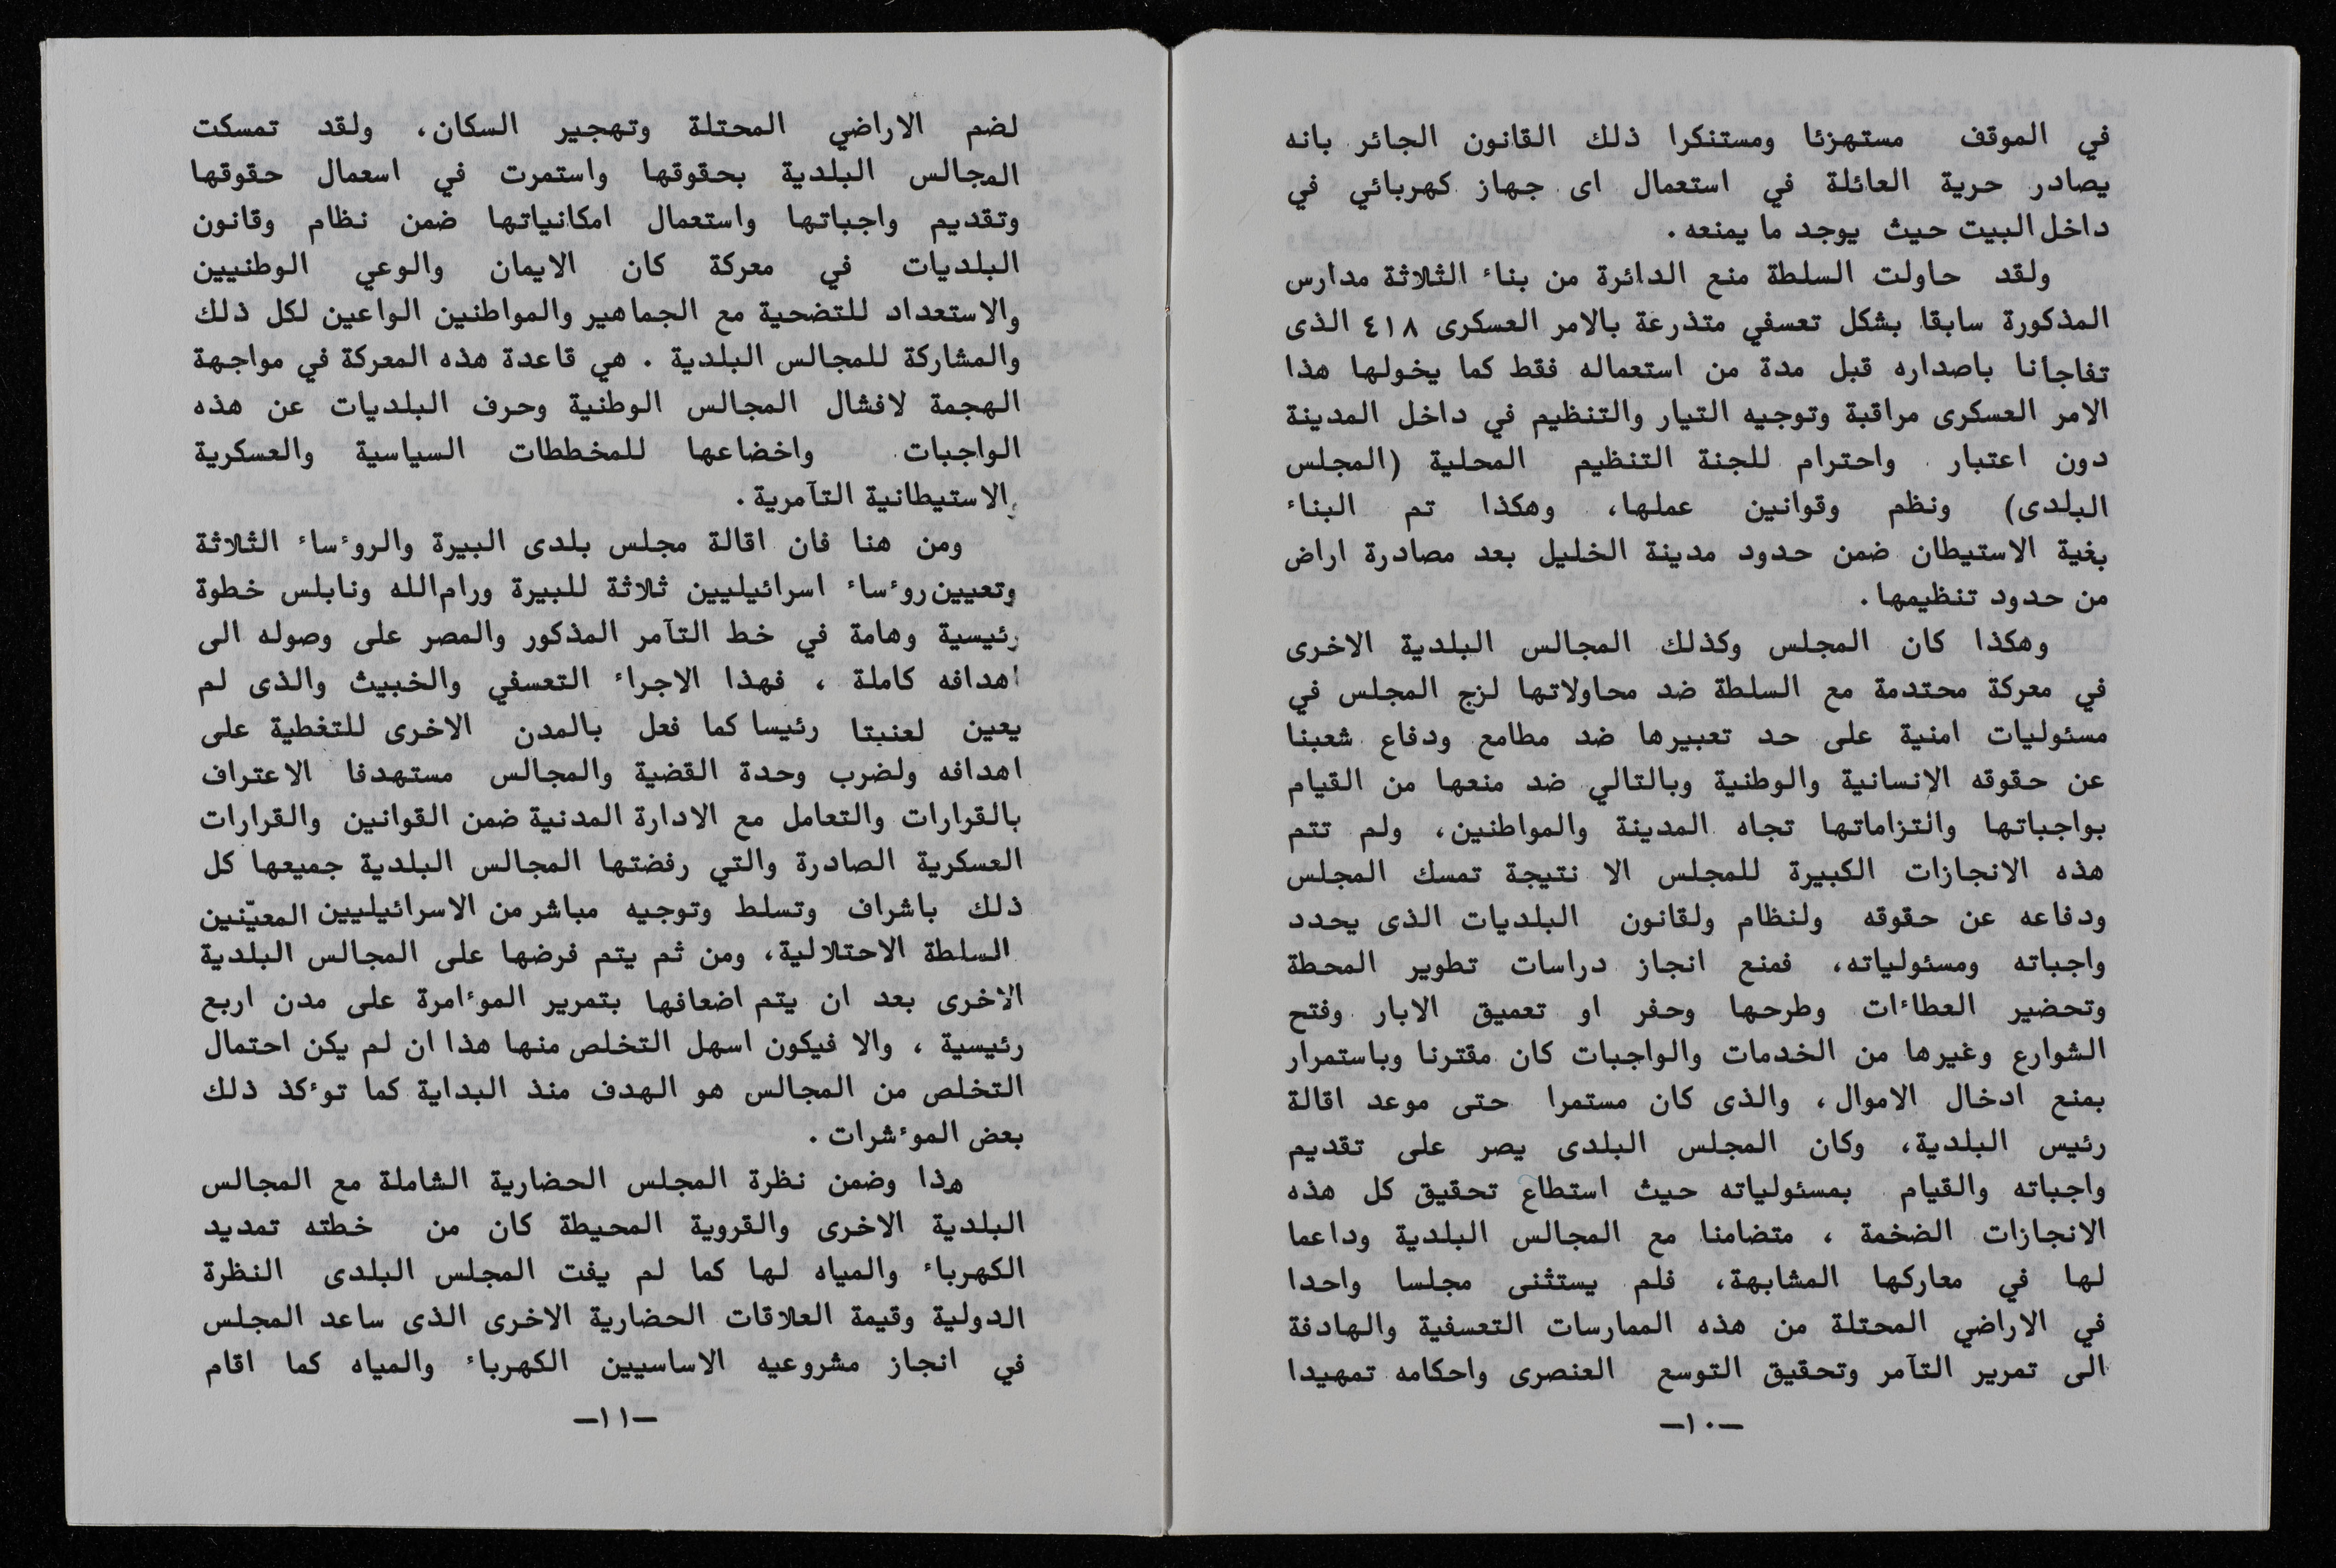 في الموقف مستهزئا ومستنكرا ذلك القانون الجائر بانه
يصادر حرية العائلة في استعمال اى جهاز كهربائي في
داخل البيت حيث يوجد ما يمنعه .
ولقد حاولت السلطة منع الدائرة من بناء الثلاثة مدارس
المذكورة سابقا بشكل تعسفي متذرعة بالامر العسكرى ٤١٨ الذى
تفاجأنا باصداره قبل مدة من استعماله فقط كما يخولها هذا
الامر العسكرى مراقبة وتوجيه التيار والتنظيم في داخل المدينة
دون اعتبار واحترام للجنة التنظيم المحلية (المجلس
البلدى) ونظم وقوانين عملها، وهكذا تم البناء
بغية الاستيطان ضمن حدود مدينة الخليل بعد مصادرة اراض
من حدود تنظيمها .
وهكذا كان المجلس وكذلك المجالس البلدية الاخرى
في معركة محتدمة مع السلطة ضد محاولاتها لزج المجلس في
مسئوليات امنية على حد تعبيرها ضد مطامع ودفاع شعبنا
عن حقوقه الانسانية والوطنية وبالتالي ضد منعها من القيام
بواجباتها والتزاماتها تجاه المدينة والمواطنين، ولم تتم
هذه الانجازات الكبيرة للمجلس الا نتيجة تمسك المجلس
ودفاعه عن حقوقه ولنظام ولقانون البلديات الذى يحدد
واجباته ومسئولياته، فمنع انجاز دراسات تطوير المحطة
وتحضير العطاءات وطرحها وحفر او تعميق الابار وفتح
الشوارع وغيرها من الخدمات والواجبات كان مقترنا وباستمرار
بمنع ادخال الاموال، والذى كان مستمرا حتى موعد اقالة
رئيس البلدية، وكان المجلس البلدى يصر على تقديم
واجباته والقيام بمسئولياته حيث استطاع تحقيق كل هذه
الانجازات الضخمة ، متضامنا مع المجالس البلدية وداعما
لها في معاركها المشابهة، فلم يستثنى مجلسا واحدا
في الاراضي المحتلة من هذه الممارسات التعسفية والهادفة
الى تمرير التآمر وتحقيق التوسع العنصرى واحكامه تمهيدا
—١٠—
لضم الاراضي المحتلة وتهجير السكان، ولقد تمسكت
المجالس البلدية بحقوقها واستمرت في اسعمال حقوقها
وتقديم واجباتها واستعمال امكانياتها ضمن نظام وقانون
البلديات في معركة كان الايمان والوعي الوطنيين
والاستعداد للتضحية مع الجماهير والمواطنين الواعين لكل ذلك
والمشاركة للمجالس البلدية . هي قاعدة هذه المعركة في مواجهة
الهجمة لافشال المجالس الوطنية وحرف البلديات عن هذه
الواجبات واخضاعها للمخططات السياسية والعسكرية
والاستيطانية التآمرية .
ومن هنا فان اقالة مجلس بلدى البيرة والروءساء الثلاثة
وتعيين روءساء اسرائيليين ثلاثة للبيرة ورام الله ونابلس خطوة
رئيسية وهامة في خط التآمر المذكور والمصر على وصوله الى
اهدافه كاملة ، فهذا الاجراء التعسفي والخبيث والذى لم
يعين لعنبتا رئيسا كما فعل بالمدن الاخرى للتغطية على
اهدافه ولضرب وحدة القضية والمجالس مستهدفا الاعتراف
بالقرارات والتعامل مع الادارة المدنية ضمن القوانين والقرارات
العسكرية الصادرة والتي رفضتها المجالس البلدية جميعها كل
ذلك باشراف وتسلط وتوجيه مباشر من الاسرائيليين المعيّنين
السلطة الاحتلالية، ومن ثم يتم فرضها على المجالس البلدية
الاخرى بعد ان يتم اضعافها بتمرير الموءامرة على مدن اربع
رئيسية ، والا فيكون اسهل التخلص منها هذا ان لم يكن احتمال
التخلص من المجالس هو الهدف منذ البداية كما توءكذ ذلك
بعض الموءشرات .
هذا وضمن نظرة المجلس الحضارية الشاملة مع المجالس
البلدية الاخرى والقروية المحيطة كان من خطته تمديد
الكهرباء والمياه لها كما لم يفت المجلس البلدى النظرة
الدولية وقيمة العلاقات الحضارية الاخرى الذى ساعد المجلس
في انجاز مشروعيه الاساسيين الكهرباء والمياه كما اقام
—١١—